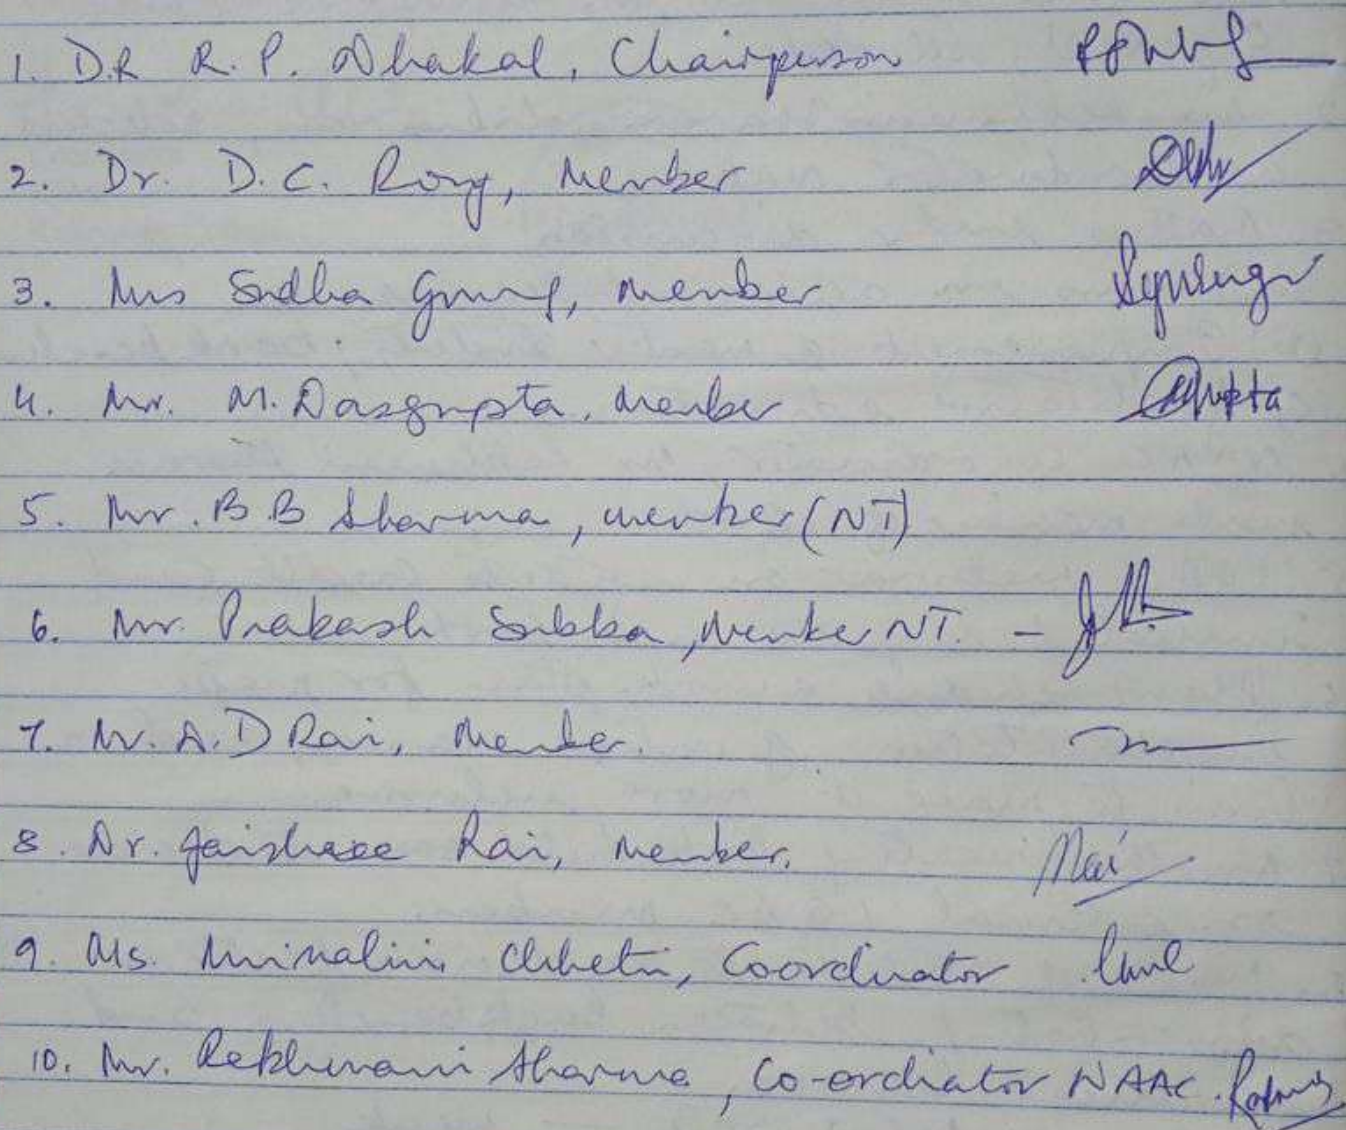 1. D.R R.P. Dhakal, Chairperson
2. Dr. D.C. Roy, Member
3. Mrs Sudha Gurung, member
4. Mr. M. Dasgupta, Member
5. Mr. B.B Sharma, member (NT)
6. Mr. Prakash Subba, Member NT. -
7. Mr. A.D Rai, Member.
8. Dr. Jaishree Rai, Member. Rai
9. Ms. Mrinalini Chhetri, Coordinator
10. Mr. Rekhmani Sharma, Co-ordinator NAAC.